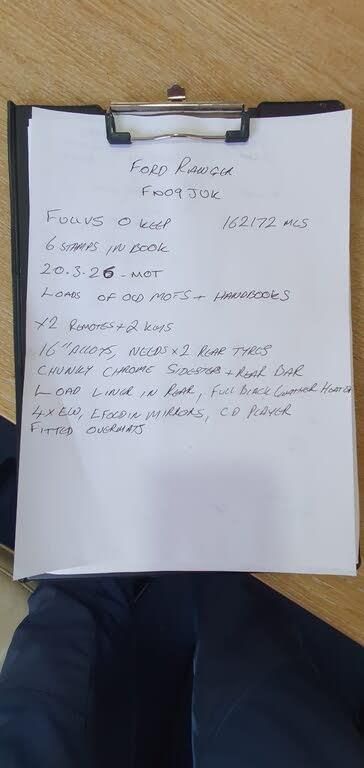 FORD RANGER
FD09JUK
FULL V5 0 KEEP 162172 MLS
6 STAMPS IN BOOK
20.3.26 - MOT
LOADS OF OLD MOTS + HANDBOOKS
X2 REMOTES + 2 KEYS
16" ALLOYS, NEEDS X2 REAR TYRES
CHUNKY CHROME SIDESTEPS + REAR BAR
LOAD LINER IN REAR, FULL BLACK LEATHER HEATED
4 X EW, EFOLDIN MIRRORS, CD PLAYER
FITTED OVERMATS